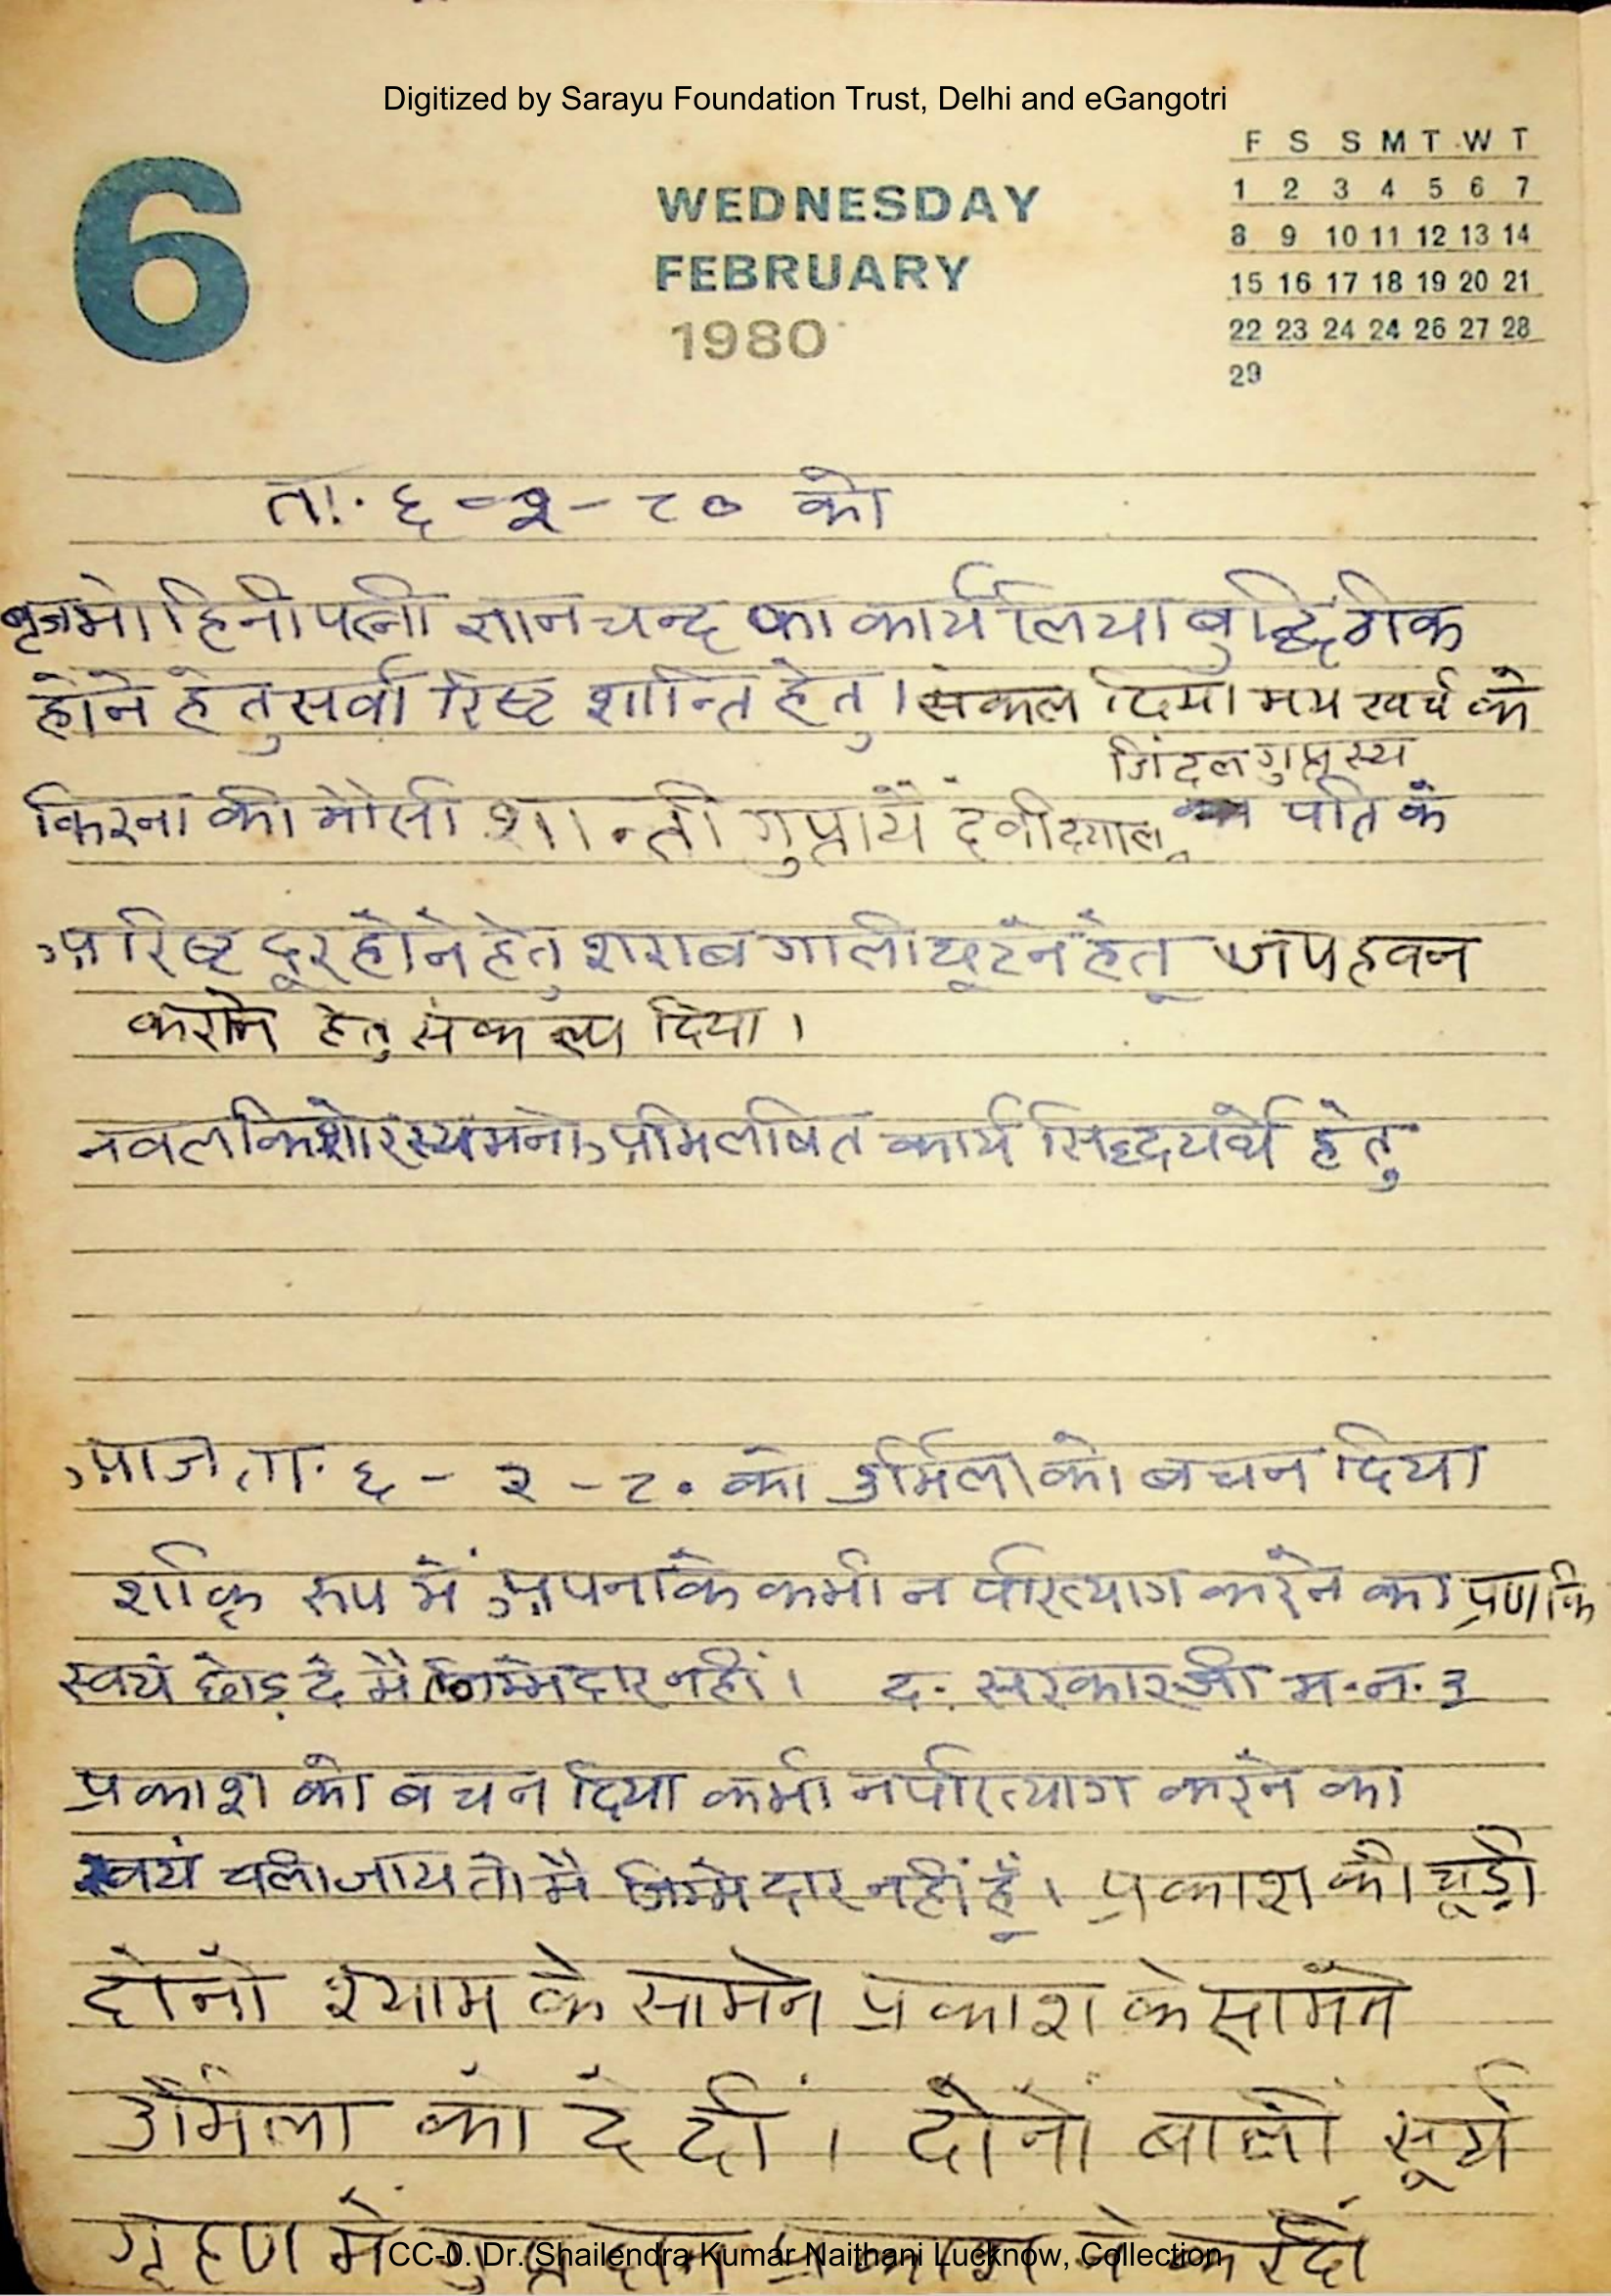 Digitized by Sarayu Foundation Trust, Delhi and eGangotri
6
WEDNESDAY
FEBRUARY
1980
F S S M T W T
1 2 3 4 5 6 7
8 9 10 11 12 13 14
15 16 17 18 19 20 21
22 23 24 24 26 27 28
29
ता. ६-२-८० को
बृजमोहिनी पत्नी ज्ञानचन्द का कार्य लिया बुद्धि ठीक
होने हेतु सर्वारिष्ट शान्ति हेतु। संकल्प दिया मय खर्च के
जिंदल गुप्तस्य
किरना की मौसी शान्ती गुप्तायै देवीदयालू पति के
अरिष्ट दूर होने हेतु शराब गाली छूटने हेतू जप हवन
कराने हेतु संकल्प दिया।
नवलकिशोरस्य मनोअभिलषित कार्य सिद्धयर्थे हेतु
आज ता. ६-२-८० को उर्मिला को बचन दिया
रूप में अपनाके कभी न परित्याग करने का प्रण कि
स्वयं छोड़ दे मै जिम्मेदार नहीं। द. सरकारजी म.न.३
प्रकाश को बचन दिया कभी न परित्याग करने का
स्वयं चला जाय तो मै जिम्मेदार नहीं हूँ। प्रकाश की चूड़ी
दोनों श्याम के सामने प्रकाश के सामने
उर्मिला को दे दी। दोनों बाली सूर्य
गृहण में गुप्त दान प्रकाश ने कर दी
CC-0. Dr. Shailendra Kumar Naithani Lucknow, Collection